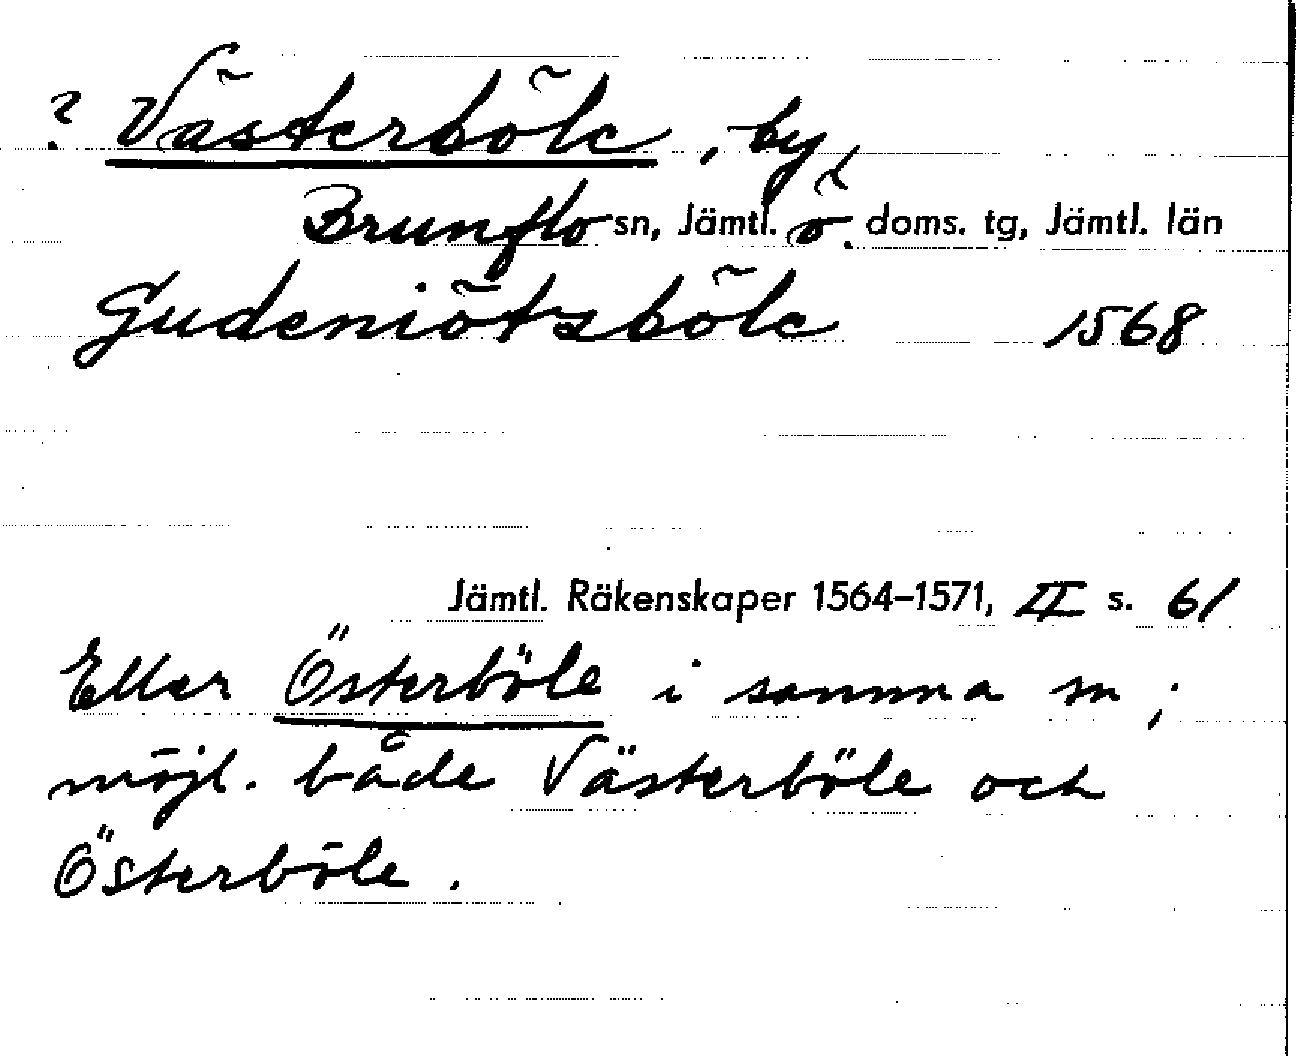 ? Västerböle, by,
Brunflo sn, Jämtl. ö. doms. tg, Jämtl. län
Gudeniötsböle 1568
Jämtl. Räkenskaper 1564-1571, II s. 61
Eller Österböle i samma sn;
möjl. både Västerböle och
Österböle.